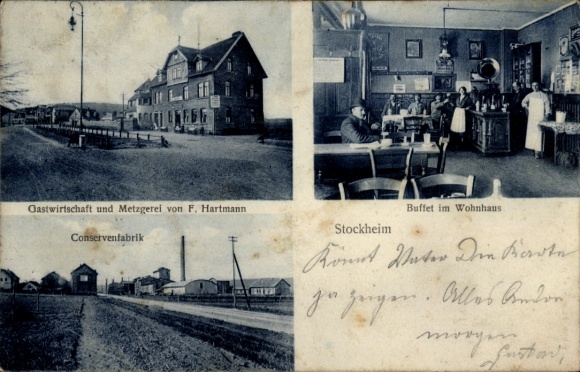 Gastwirtschaft und Metzgerei von F. Hartmann
Buffet im Wohnhaus
Conservenfabrik
Stockheim
Könnt Vater Die Karte
ja zeigen. Alles Andre
morgen